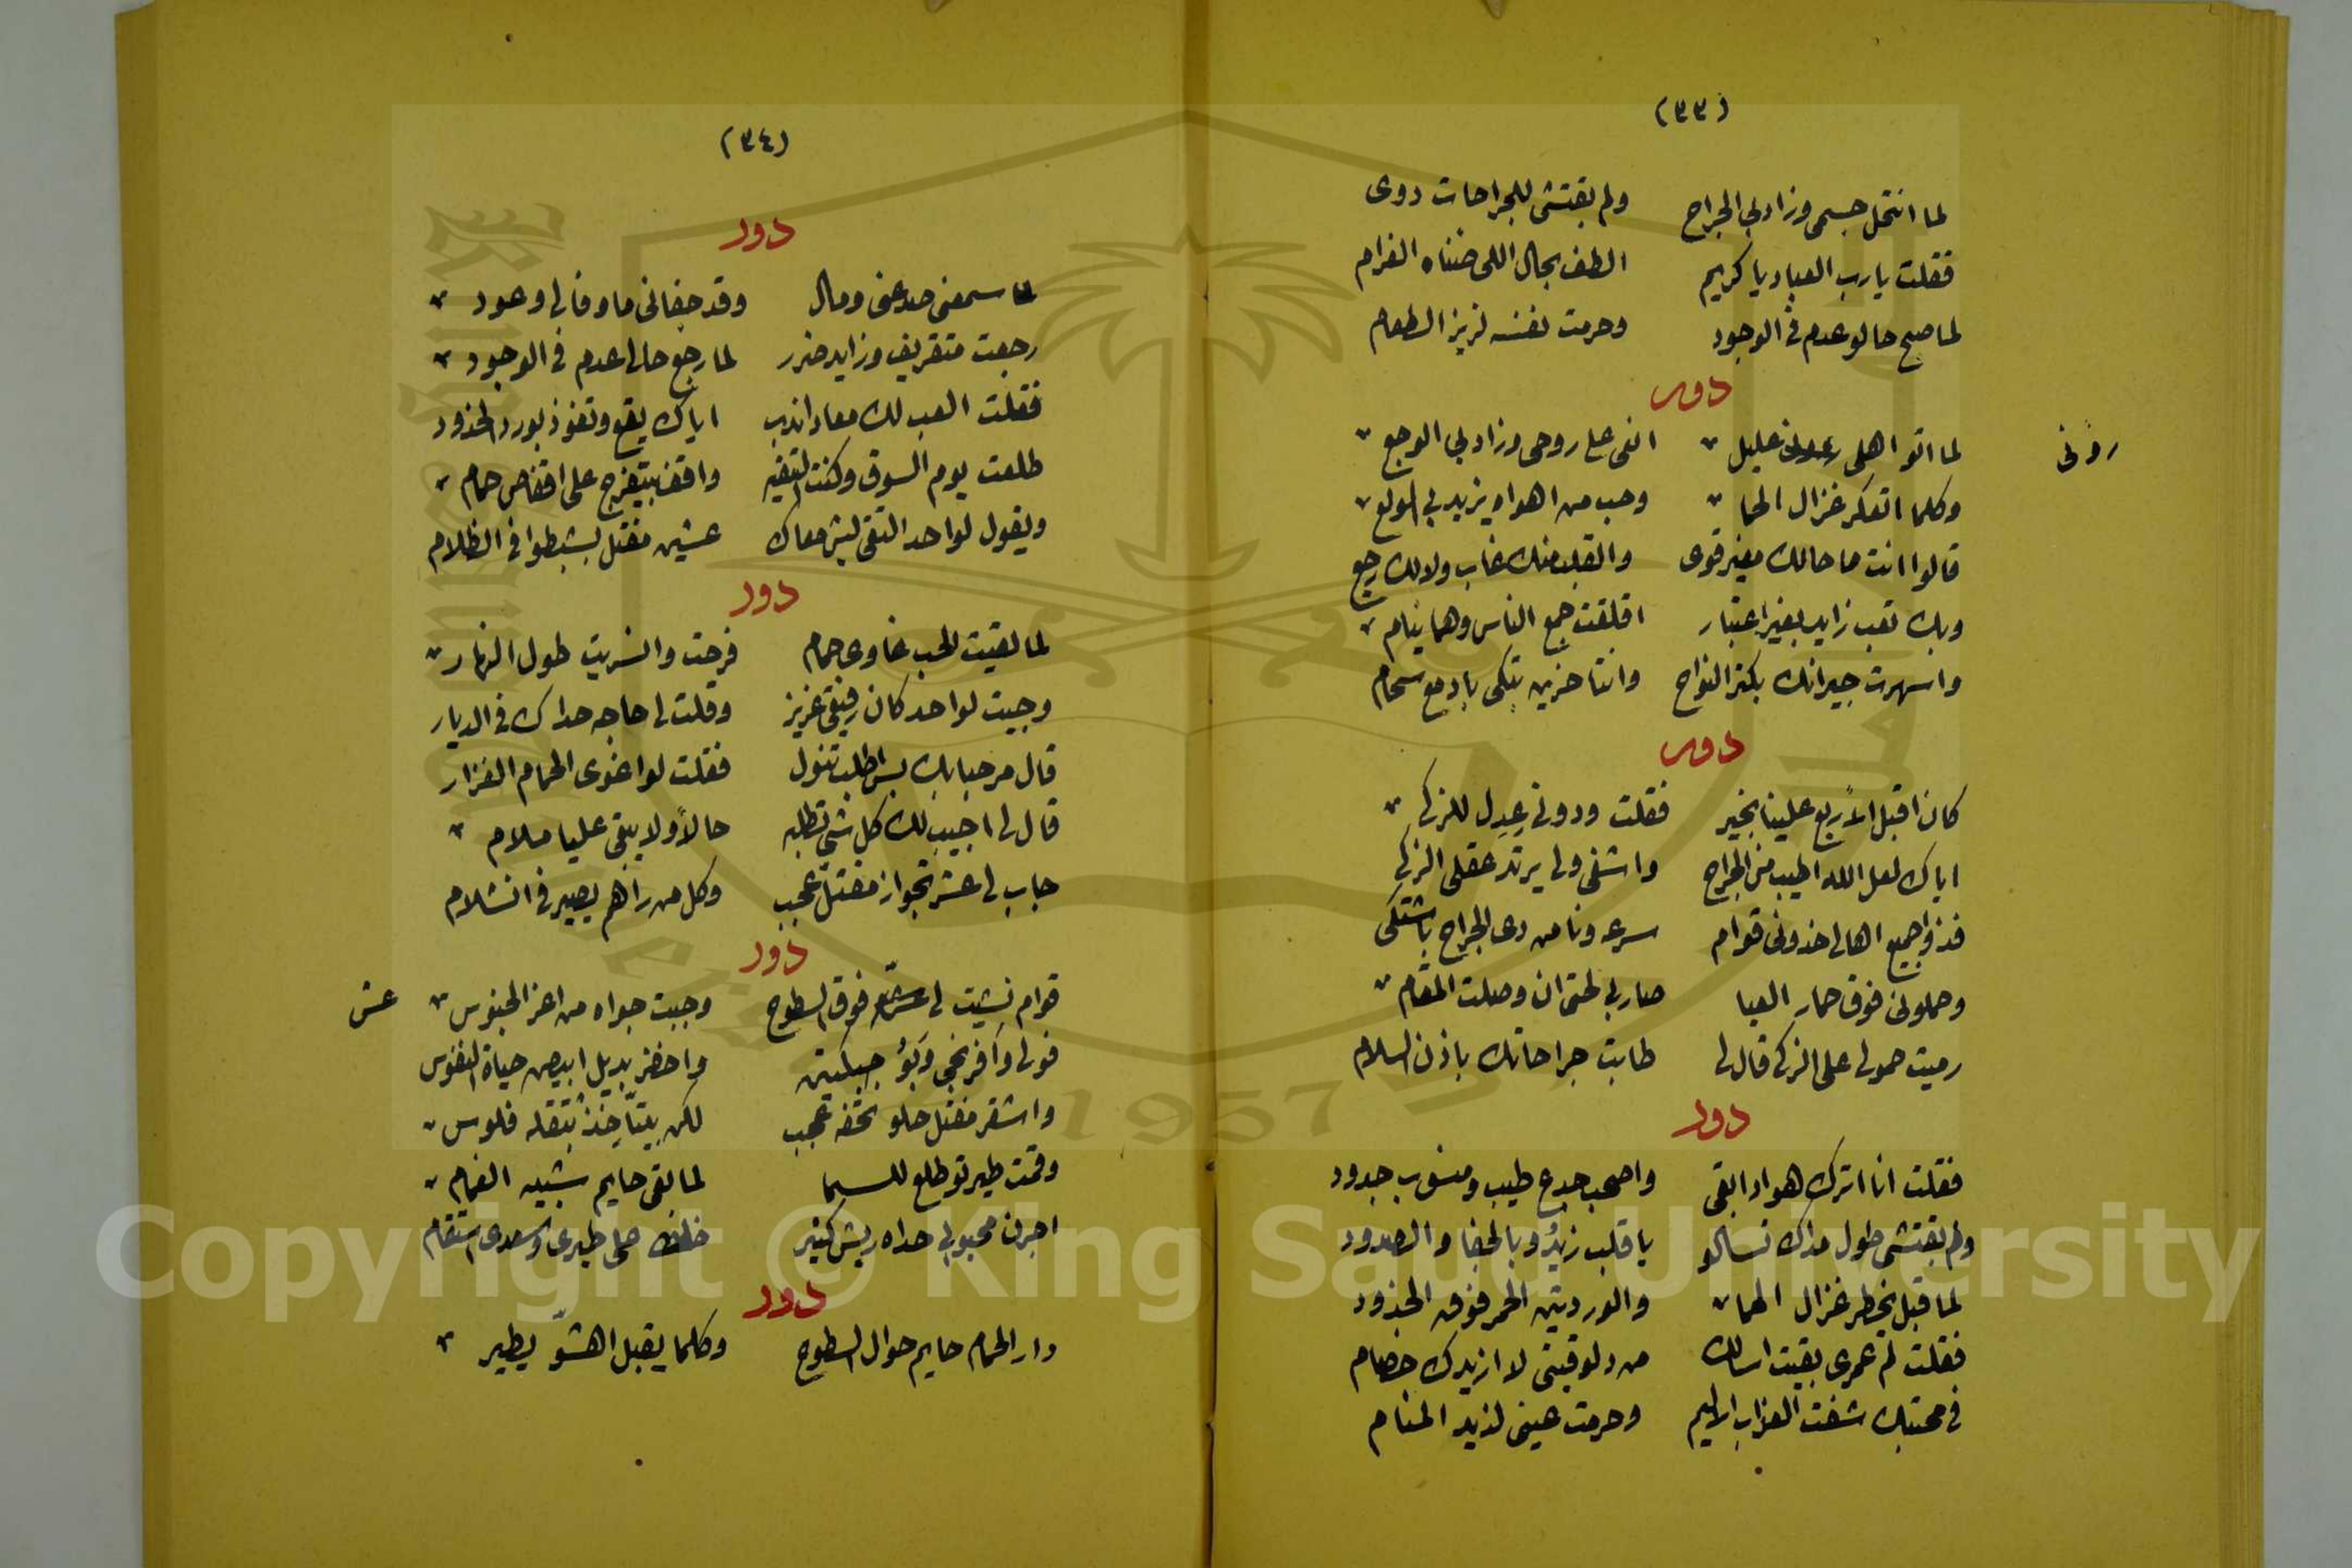 (٣٣)
لما انتحل جسمى وزاد بي الجراح ولم بقتشى للجراحات دوى
فقلت يا رب العباد يا كريم الطف بحال اللى ضناه الغرام
لما صبح حالو عدم فى الوجود وحرمت نفسه لزيز الطعام
دور
لما اتو اهلى عليل انعى على روحى وزاد بي الوجع
رونى
وكلما اتفكر غزال الحما وحب من اهواه يزيد بي الولع
قالوا انت ما حالك مغير قوى والقلب منك غاب ولا لك رجع
وبك تعب زايد بغير اعتبار اقلقت جمع الناس وهما ينام
واسهرت جيرانك بكتر النواح وانتا حزين تبكى بادمع سجام
دور
كان اقبل الاربع علينا بخير فقلت ودونى عدل للزكى
اياك لعل الله اطيب من الجراح واشفى ولى يرتد عقلى الزكى
قد واجميع اهالى خدونى قوام سرعه ونا من دى الجراح باشتكى
وحملونى فوق حمار العبا صار بي لحتى ان وصلت المقام
رميت حمولى على الزكى قال لى طابت جراحاتك باذن السلام
دور
فقلت انا اترك هواد ابقى واصحب جدع طيب ومنسوب جدود
ولم بقتشى طول مداك تسالو يا قلب زيدو بالجفا والصدود
لما قبل يخطر غزال الحما والوردتين الحمر فوق الخدود
فقلت لم عمرى بقيت اسالك من دلوقيتى لا ازيدك خصام
فى محبتك شفت العزاب الاليم وحرمت عينى لذيد المنام
(٣٤)
دور
لما سمعنى صد عنى ومال وقد جفانى ما وفا لى وعود
رجعت متقريف وزايد ضرر لما رجع حالى عدم فى الوجود
فقلت العب لك معاد اندب اياك يقع وتفوذ بورد الخدود
طلعت يوم السوق وكنت واقف بيتفرج على اقفاص حمام
ويقول لواحد التقى ليش معاك عشين مقتل بشبطوا فى الظلام
دور
لما لقيت الحب غاوى حمام فرحت وانسريت طول النهار
وجيت لواحد كان رفيقى عزيز وقلت لى حاجه حداك فى الديار
قال مرحبا بك بس اطلب تنول فقلت لو اغوى الحمام الغزار
قال لى اجيب لك كل شى تطلبه حالا ولا يبقى عليا ملام
جاب لى عشر تجواز مقتل عجب وكل من راهم يصير فى انشلام
دور
قوام نشيت لى عشه فوق السطوح وجبت جواه من اعز الجنوس
عش
فولى وافرنجى وبو جبلتين واخضر بديل ابيض حياة النفوس
واشقر مقتل حلو تحفه عجب لكن بيتاخذ بتقله فلوس
وقمت طيرتو طلع للسما لما بقى حايم شبيه الغمام
اجرن محبوبى حداه ريش كتير على طيرى وسعدى استقام
دور
دار الحمام حايم حوال السطوح وكلما يقبل اهشو يطير
Copyright © King Saud University
1957